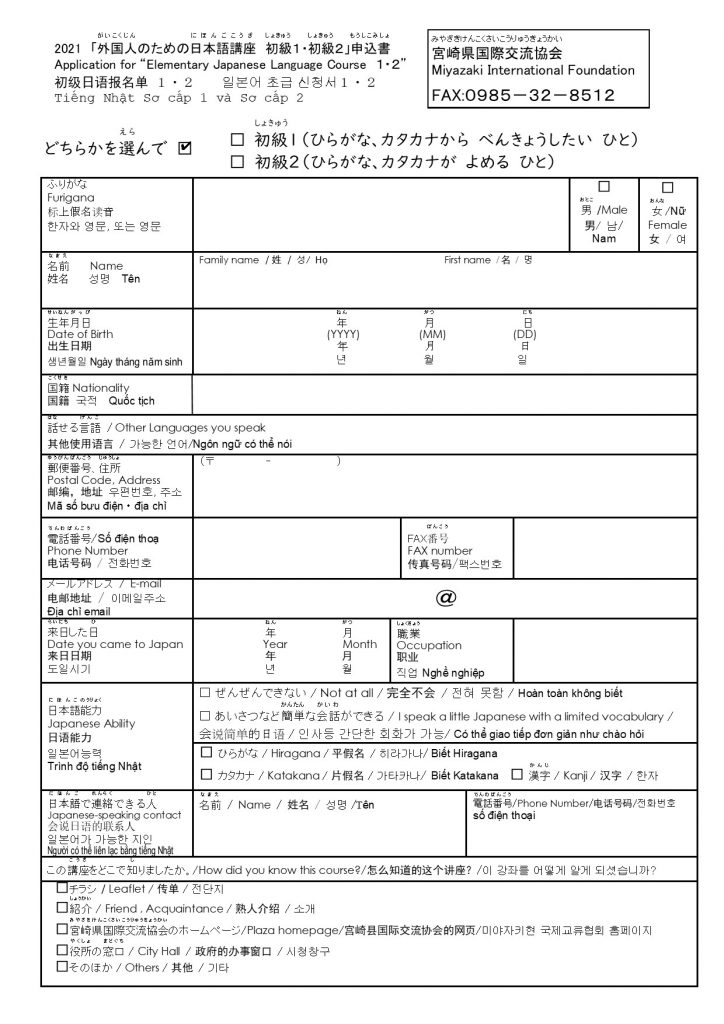 がいこくじん　にほんごこうざ　しょきゅう　しょきゅう　もうしこみしょ
2021 「外国人のための日本語講座 初級1・初級2」申込書
Application for “Elementary Japanese Language Course 1・2”
初级日语报名单 1・2 일본어 초급 신청서 1・2
Tiếng Nhật Sơ cấp 1 và Sơ cấp 2
みやざきけんこくさいこうりゅうきょうかい
宮崎県国際交流協会
Miyazaki International Foundation
FAX:0985－32－8512
えら
どちらかを選んで ☑
しょきゅう
□ 初級1(ひらがな、カタカナから べんきょうしたい ひと)
□ 初級2(ひらがな、カタカナが よめる ひと)
ふりがな
Furigana
标上假名读音
한자와 영문, 또는 영문
□
おとこ
男 /Male
男/ 남/
Nam
□
おんな
女 /Nữ
Female
女 / 여
なまえ
名前 Name
姓名 성명 Tên
Family name / 姓 / 성/ Họ First name / 名 / 명
せいねんがっぴ
生年月日
Date of Birth
出生日期
생년월일 Ngày tháng năm sinh
ねん　がつ　にち
年 月 日
(YYYY) (MM) (DD)
年 月 日
년 월 일
こくせき
国籍 Nationality
国籍 국적 Quốc tịch
はな　げんご
話せる言語 / Other Languages you speak
其他使用语言 / 가능한 언어/Ngôn ngữ có thể nói
ゆうびんばんごう じゅうしょ
郵便番号、住所
Postal Code, Address
邮编，地址 우편번호, 주소
Mã số bưu điện・địa chỉ
(〒 - )
でんわばんごう
電話番号/Số điện thoạ
Phone Number
电话号码 / 전화번호
ばんごう
FAX番号
FAX number
传真号码/팩스번호
メールアドレス / E-mail
电邮地址 / 이메일주소
Địa chỉ email
@
らいにち　ひ
来日した日
Date you came to Japan
来日日期
도일시기
ねん　がつ
年 月
Year Month
年 月
년 월
しょくぎょう
職業
Occupation
职业
직업 Nghề nghiệp
にほんごのうりょく
日本語能力
Japanese Ability
日语能力
일본어능력
Trình độ tiếng Nhật
□ ぜんぜんできない / Not at all / 完全不会 / 전혀 못함 / Hoàn toàn không biết
かんたん　かいわ
□ あいさつなど簡単な会話ができる / I speak a little Japanese with a limited vocabulary /
会说简单的日语 / 인사등 간단한 회화가 가능/ Có thể giao tiếp đơn giản như chào hỏi
□ ひらがな / Hiragana / 平假名 / 히라가나/ Biết Hiragana
かんじ
□ カタカナ / Katakana / 片假名 / 가타카나/ Biết Katakana □ 漢字 / Kanji / 汉字 / 한자
にほんご　れんらく　ひと
日本語で連絡できる人
Japanese-speaking contact
会说日语的联系人
일본어가 가능한 지인
Người có thể liên lạc bằng tiếng Nhật
なまえ
名前 / Name / 姓名 / 성명 /Tên
でんわばんごう
電話番号/Phone Number/电话号码/전화번호
số điện thoại
こうざ　し
この講座をどこで知りましたか。/How did you know this course?/怎么知道的这个讲座? /이 강좌를 어떻게 알게 되셨습니까?
□チラシ / Leaflet / 传单 / 전단지
しょうかい
□紹介 / Friend , Acquaintance / 熟人介绍 / 소개
みやざきけんこくさいこうりゅうきょうかい
□宮崎県国際交流協会のホームページ/Plaza homepage/宫崎县国际交流协会的网页/미야자키현 국제교류협회 홈페이지
やくしょ　まどぐち
□役所の窓口 / City Hall / 政府的办事窗口 / 시청창구
□そのほか / Others / 其他 / 기타